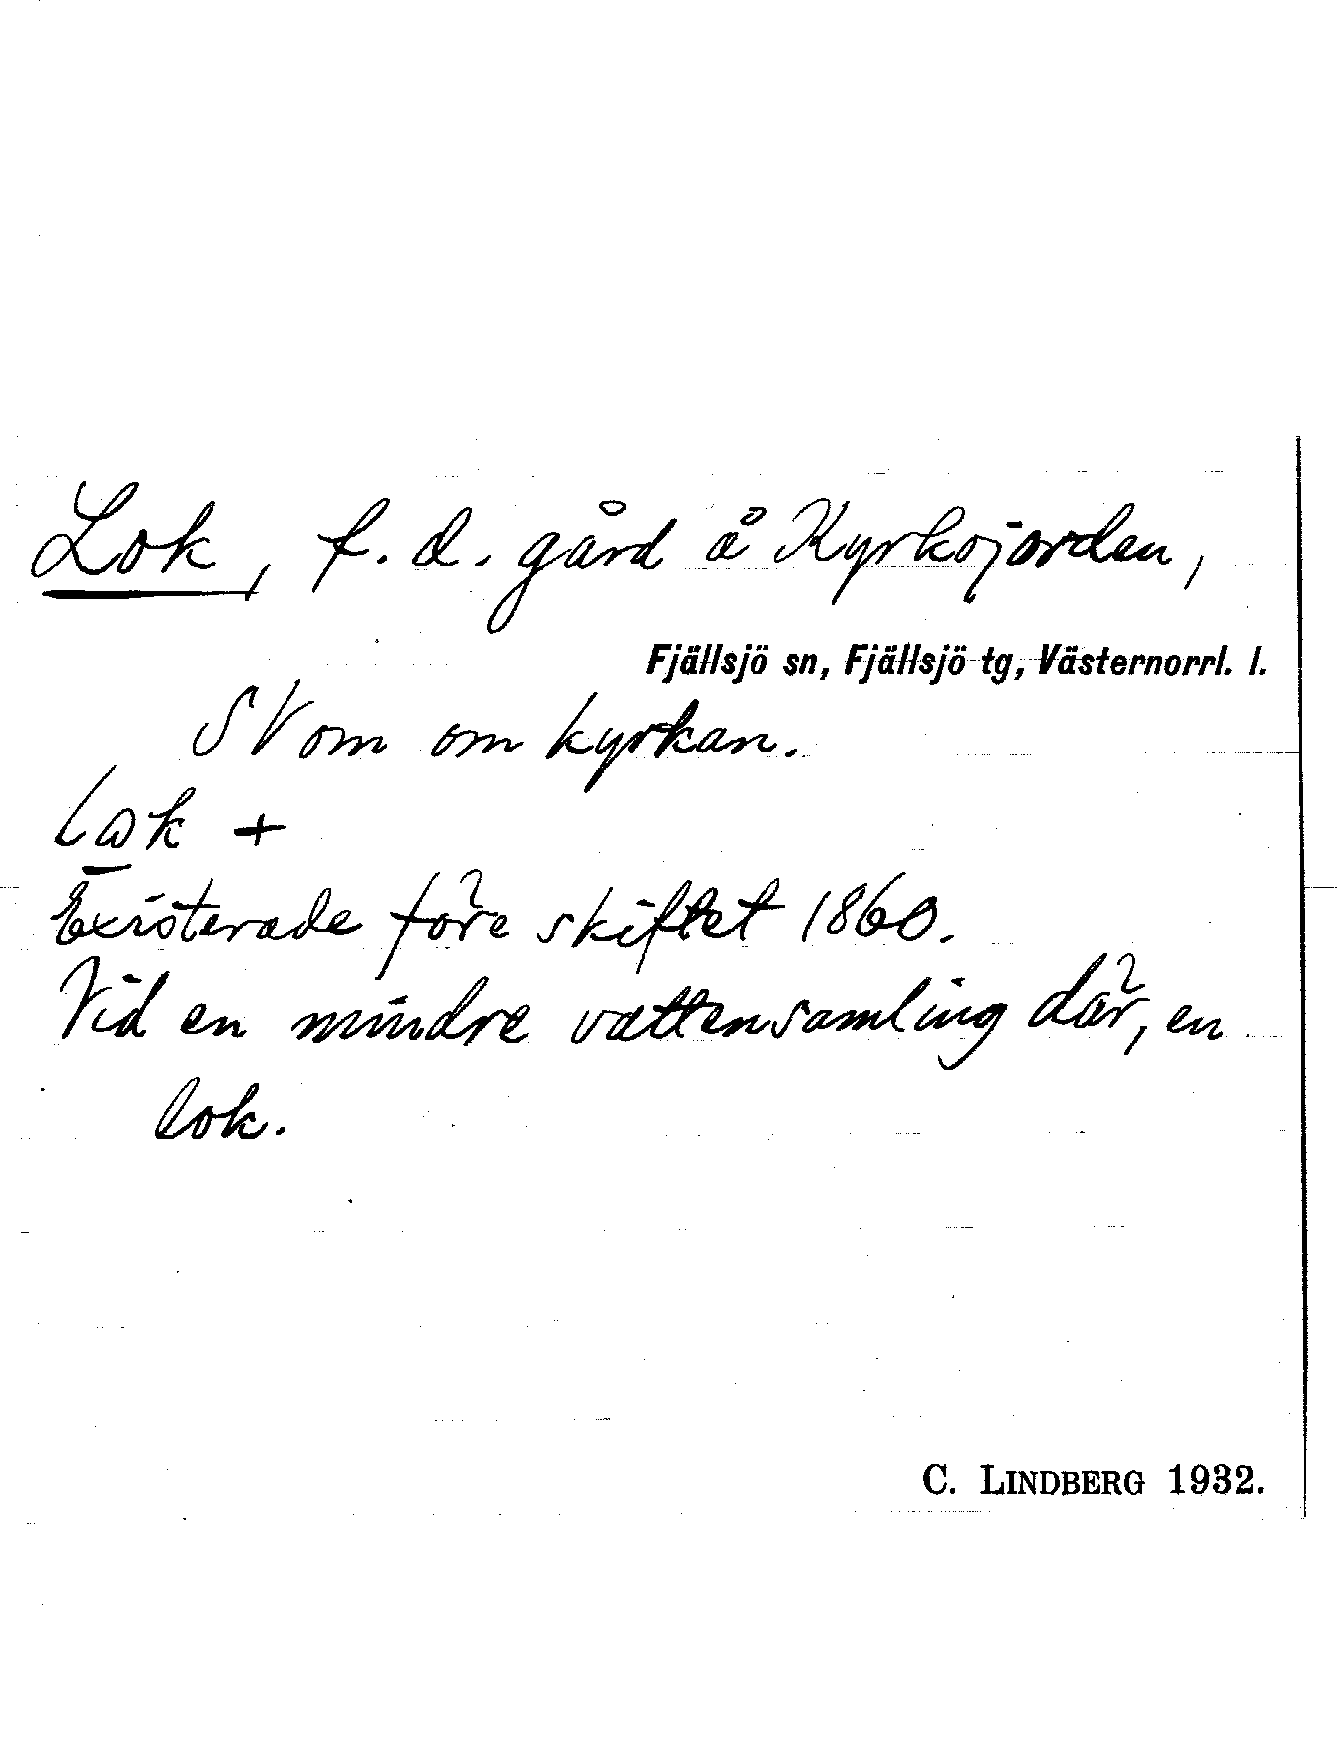 Lok, f. d. gård å Kyrkojorden,
Fjällsjö sn, Fjällsjö tg, Västernorrl. l.
SV om om kyrkan.
Lωk +
Existerade före skiftet 1860.
Vid en mindre vattensamling där, en
lok.
C. LINDBERG 1932.